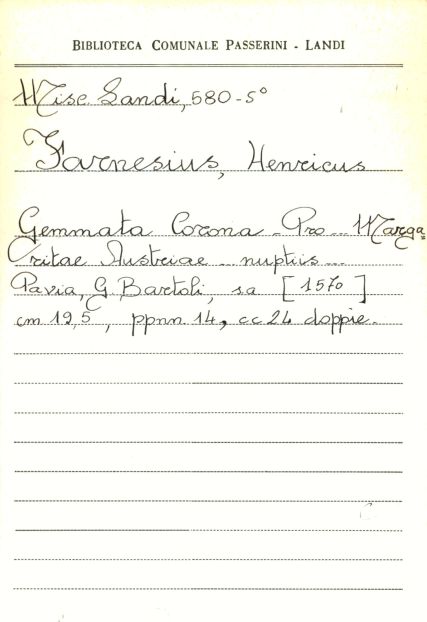 BIBLIOTECA COMUNALE PASSERINI - LANDI
Misc. Landi, 580-5°
Farnesius, Henricus
Gemmata Corona - Pro ... Marga=
ritae Austriae ... nuptiis ...
Pavia, G. Bartoli, s.a [1570]
cm 19,5, ppnn. 14, cc 24 doppie.